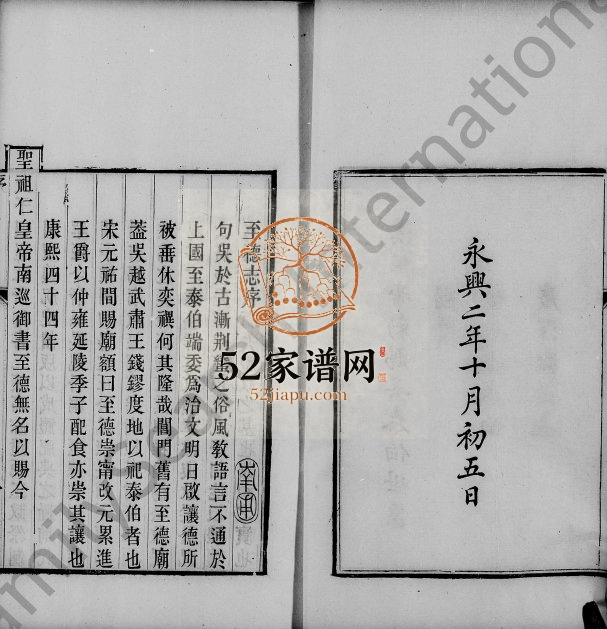 永興二年十月初五日
至德志序
句吳於古漸荆蠻之俗風敎語言不通於
上國至泰伯端委爲治文明日啟讓德所
被垂休奕禩何其隆哉閶門舊有至德廟
葢吳越武肅王錢鏐度地以祀泰伯者也
宋元祐間賜廟額曰至德崇甯改元累進
王爵以仲雍延陵季子配食亦崇其讓也
康熙四十四年
聖祖仁皇帝南巡御書至德無名以賜今
序
52家谱网
52jiapu.com
FamilySearch International